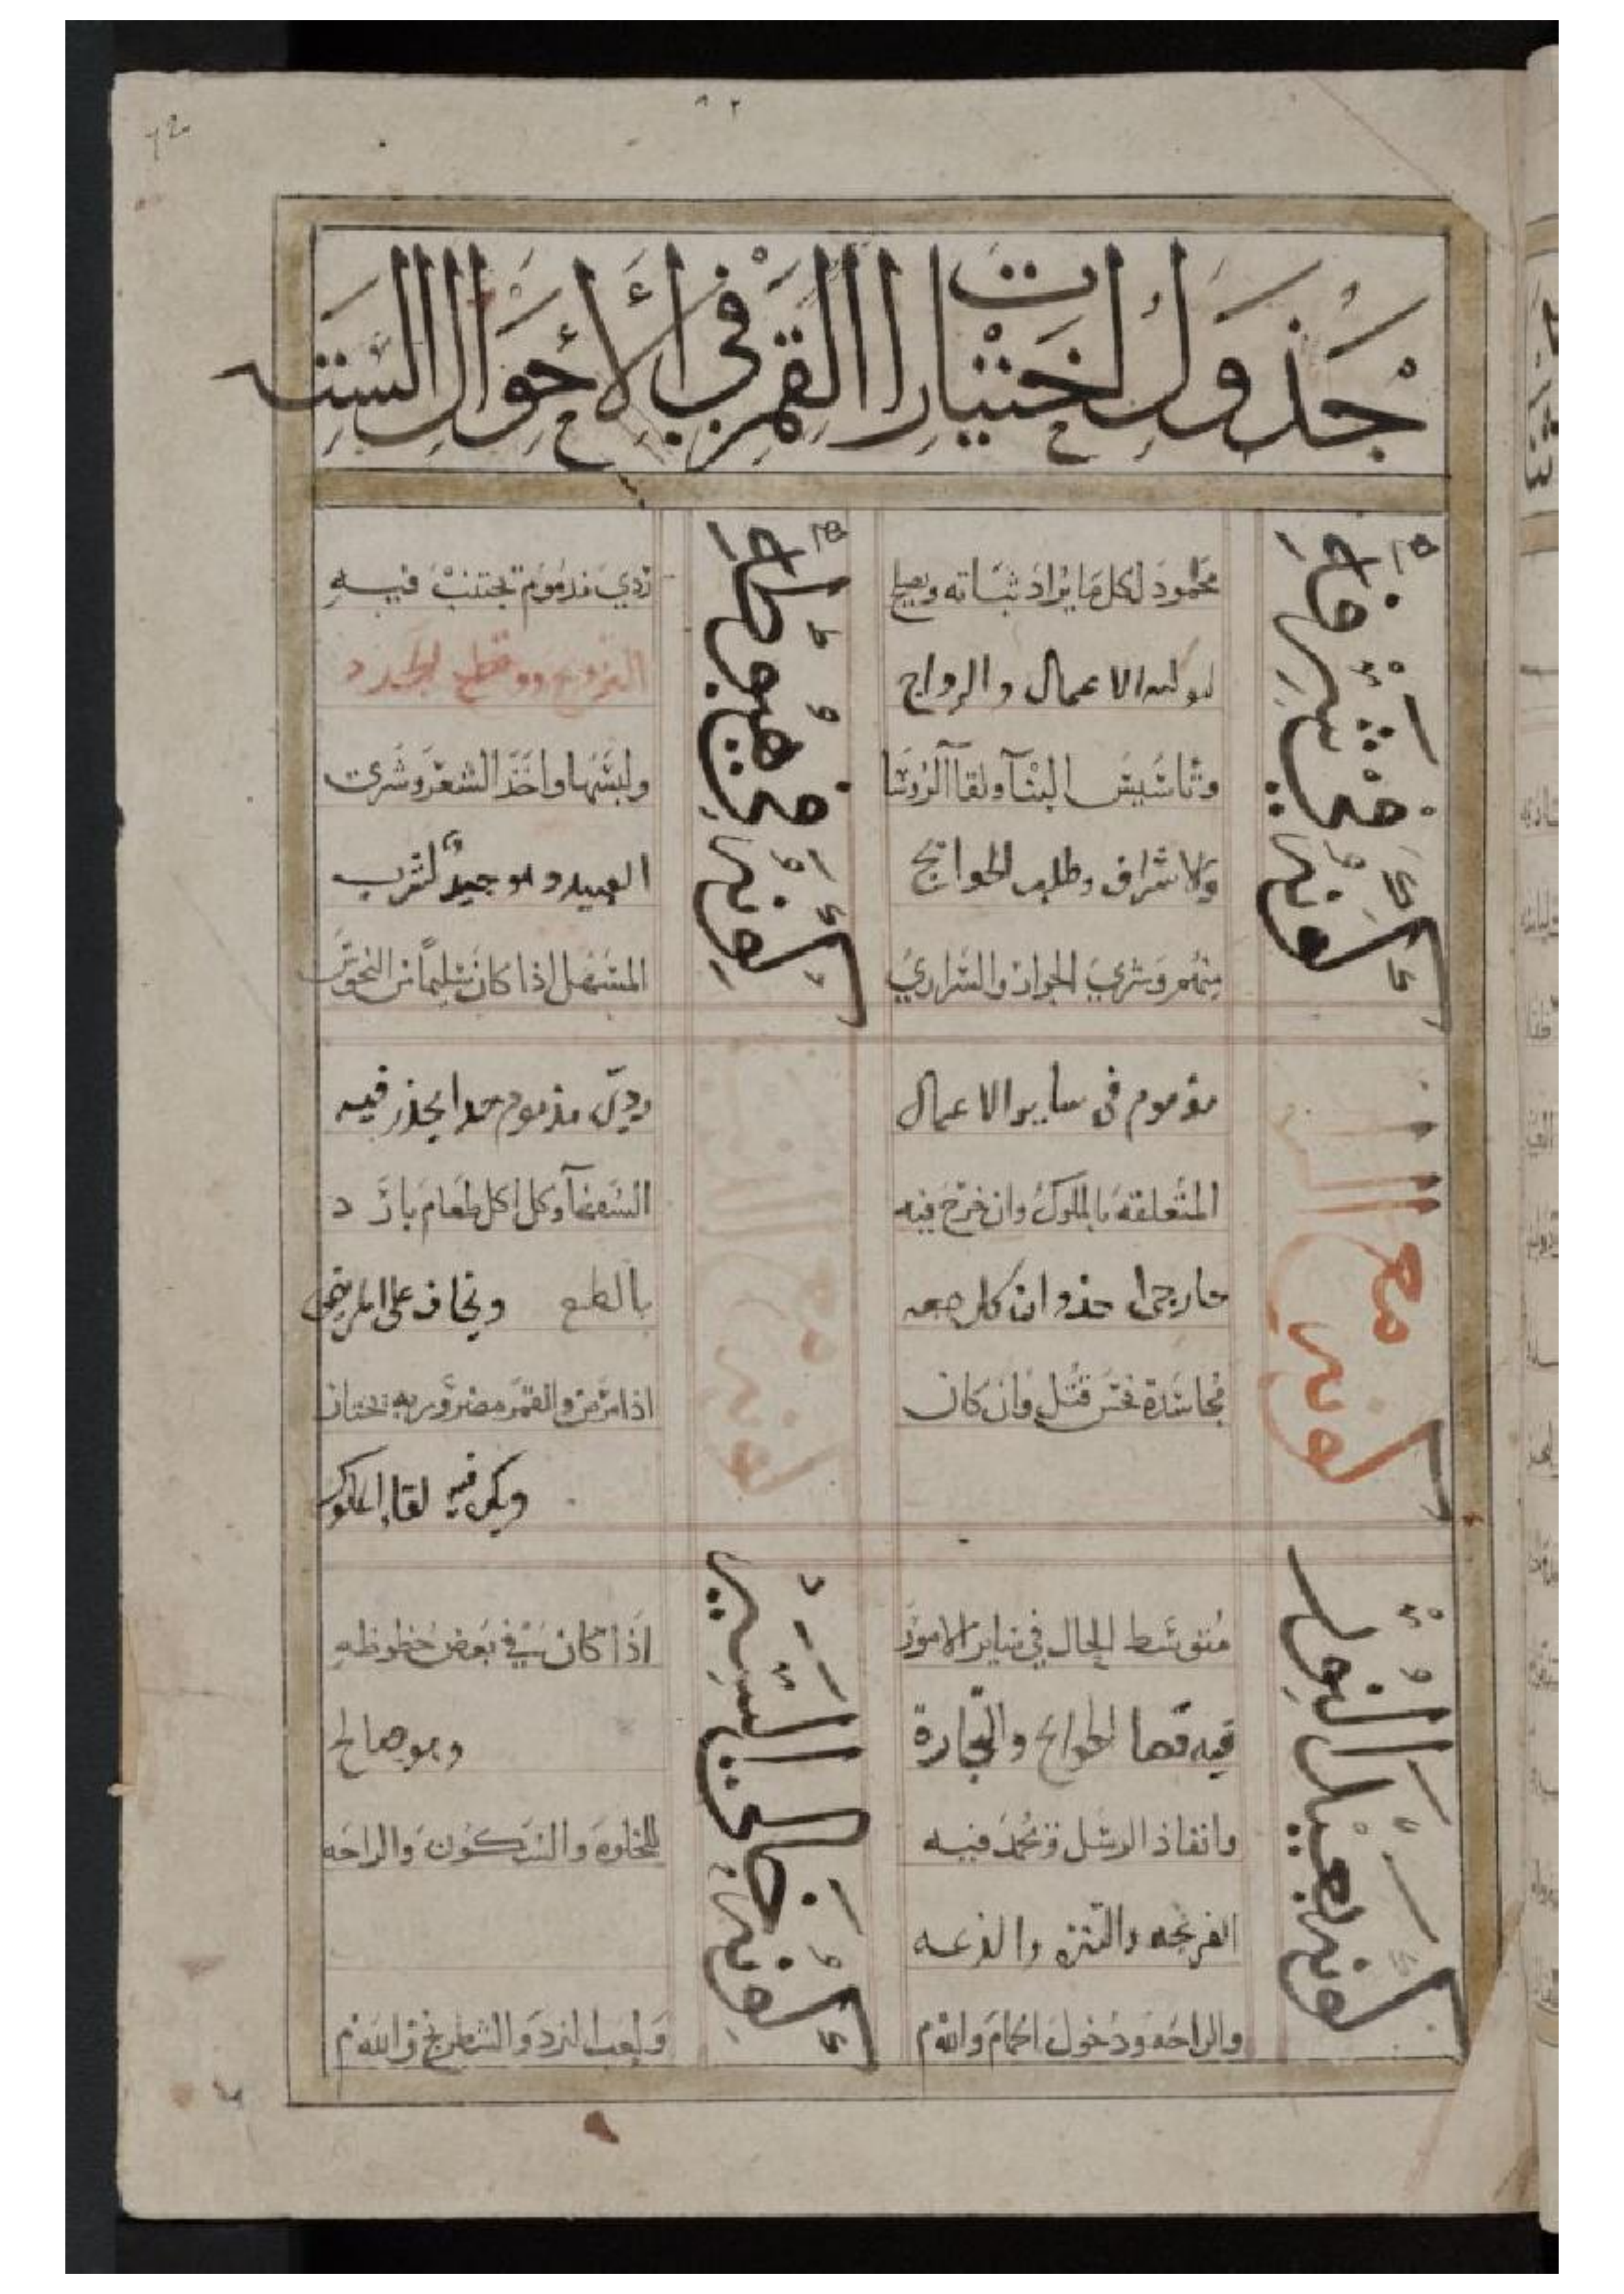 ٨٢
جدول اختيارات القمر في الأحوال الستة
كونه في شرفه
محمود لكل ما يراد ثباته ويصلح
الاعمال والزواج
وتاسيس البنآ ولقآ الروسا
والاشراف وطلب الحوائج
منهم وشري الجوار والسراري
كونه في هبوطه
ردي مذموم تجتنب فيه
التزويج وقطع الجدد
ولبسها واخذ الشعر وشرى
العبيد وهو جيد لشرب
المسهل اذا كان سليما من النحوس
كونه مع
مذموم في ساير الاعمال
المتعلقة بالملوك وان خرج فيه
خارجي اخذ وان كان معه
مجاسدة نحس قتل وان كان
كونه مع
ردي مذموم جدا يحذر فيه
وكل اكل طعام بارد
بالطبع ويخاف على المريض
اذا مرض والقمر
ويكره فيه لقا الملوك
كونه بعيد النور
متوسط الحال في ساير الامور
فيه قضا الحوائج والتجارة
وانفاذ الرسل وتحمد فيه
الفرجه والتنزه والدعه
والراحه ودخول الحمام والله م
كونه خالي السير
اذا كان في بعض حظوظه
وهو صالح
للخلوة والسكون والراحه
ولعب النرد والشطرنج والله م